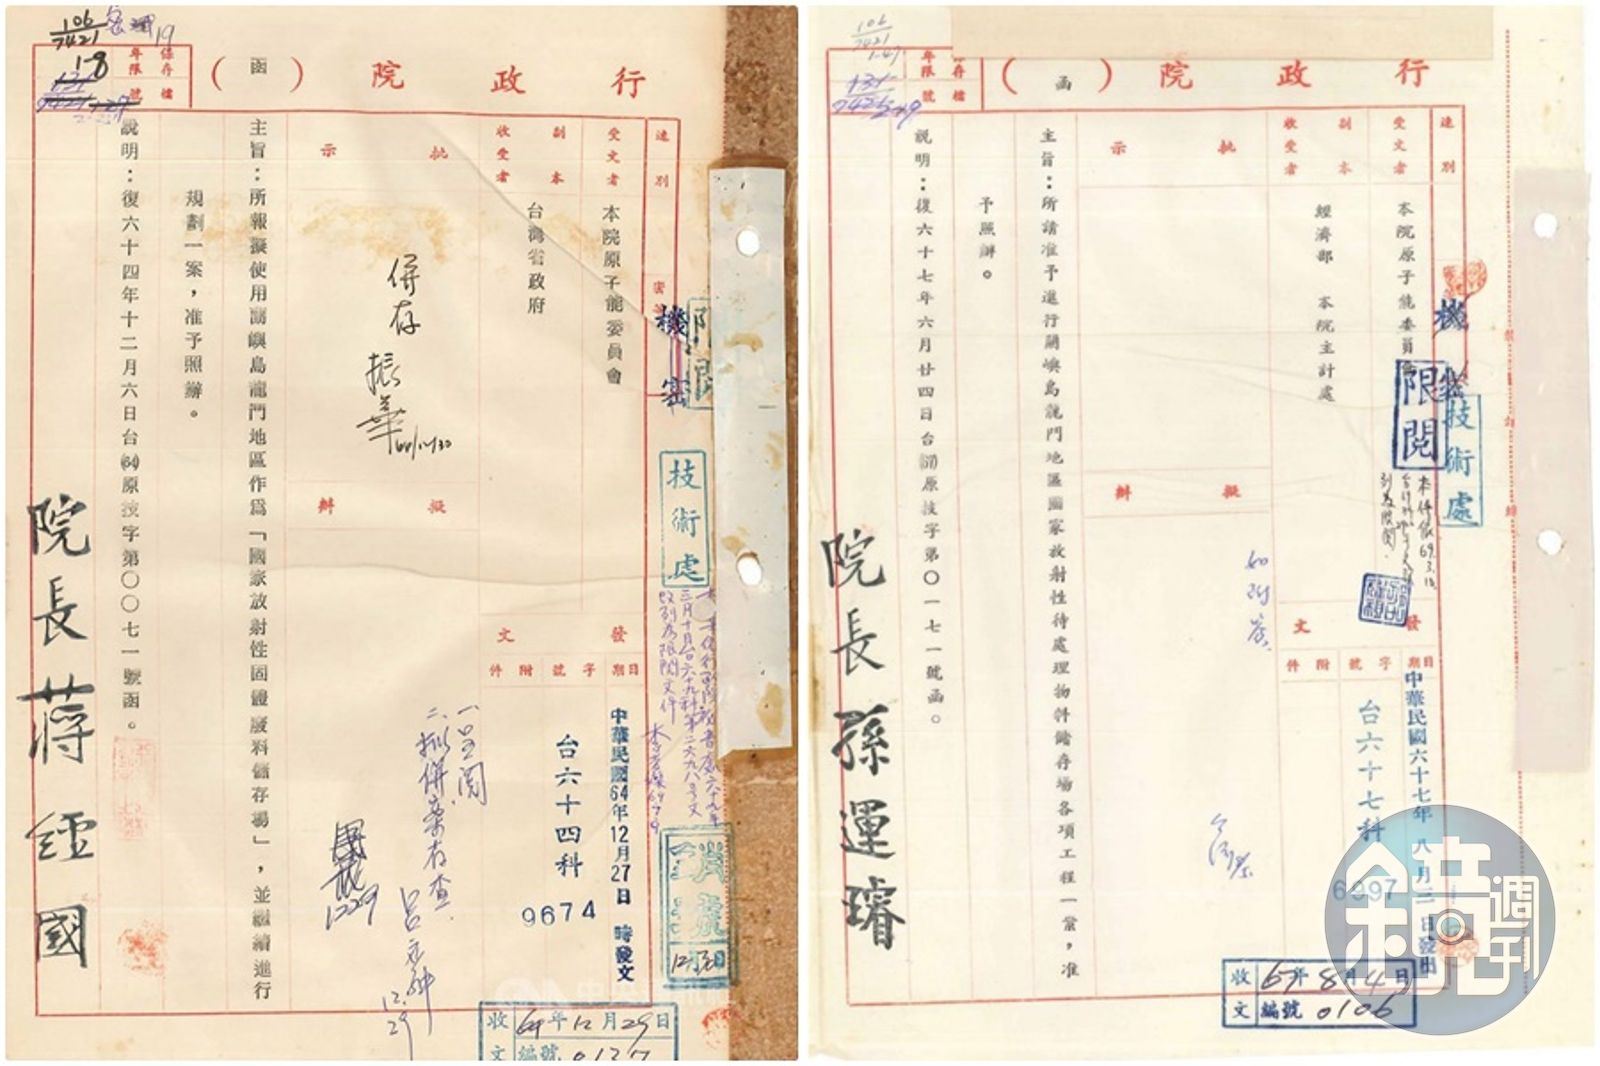 行政院（函）
保存年限
檔號
速別
密等
機密
限閱
受文者
本院原子能委員會
副本收受者
台灣省政府
批示
併存
振華
擬辦
發文
日期
字號
附件
中華民國64年12月27日 時發文
台六十四科
9674
主旨：所報擬使用蘭嶼島龍門地區作為「國家放射性固體廢料儲存場」，並繼續進行
規劃一案，准予照辦。
說明：復六十四年十二月六日台(64)原技字第〇〇七一號函。
院長蔣經國
技術處
一、呈閱
二、擬併案存查
12.29
1229
收 64年12月29日
文 編號 0137
行政院（函）
保存年限
檔號
速別
機密
限閱
技術處
受文者
本院原子能委員會
副本收受者
經濟部 本院主計處
批示
擬辦
發文
日期
字號
附件
中華民國六十七年八月二日發出
台六十七科
6997
主旨：所請准予進行蘭嶼島龍門地區國家放射性待處理物料儲存場各項工程一案，准
予照辦。
說明：復六十七年六月廿四日台(67)原技字第〇一七一號函。
院長孫運璿
收 67年8月4日
文 編號 0106
鏡週刊